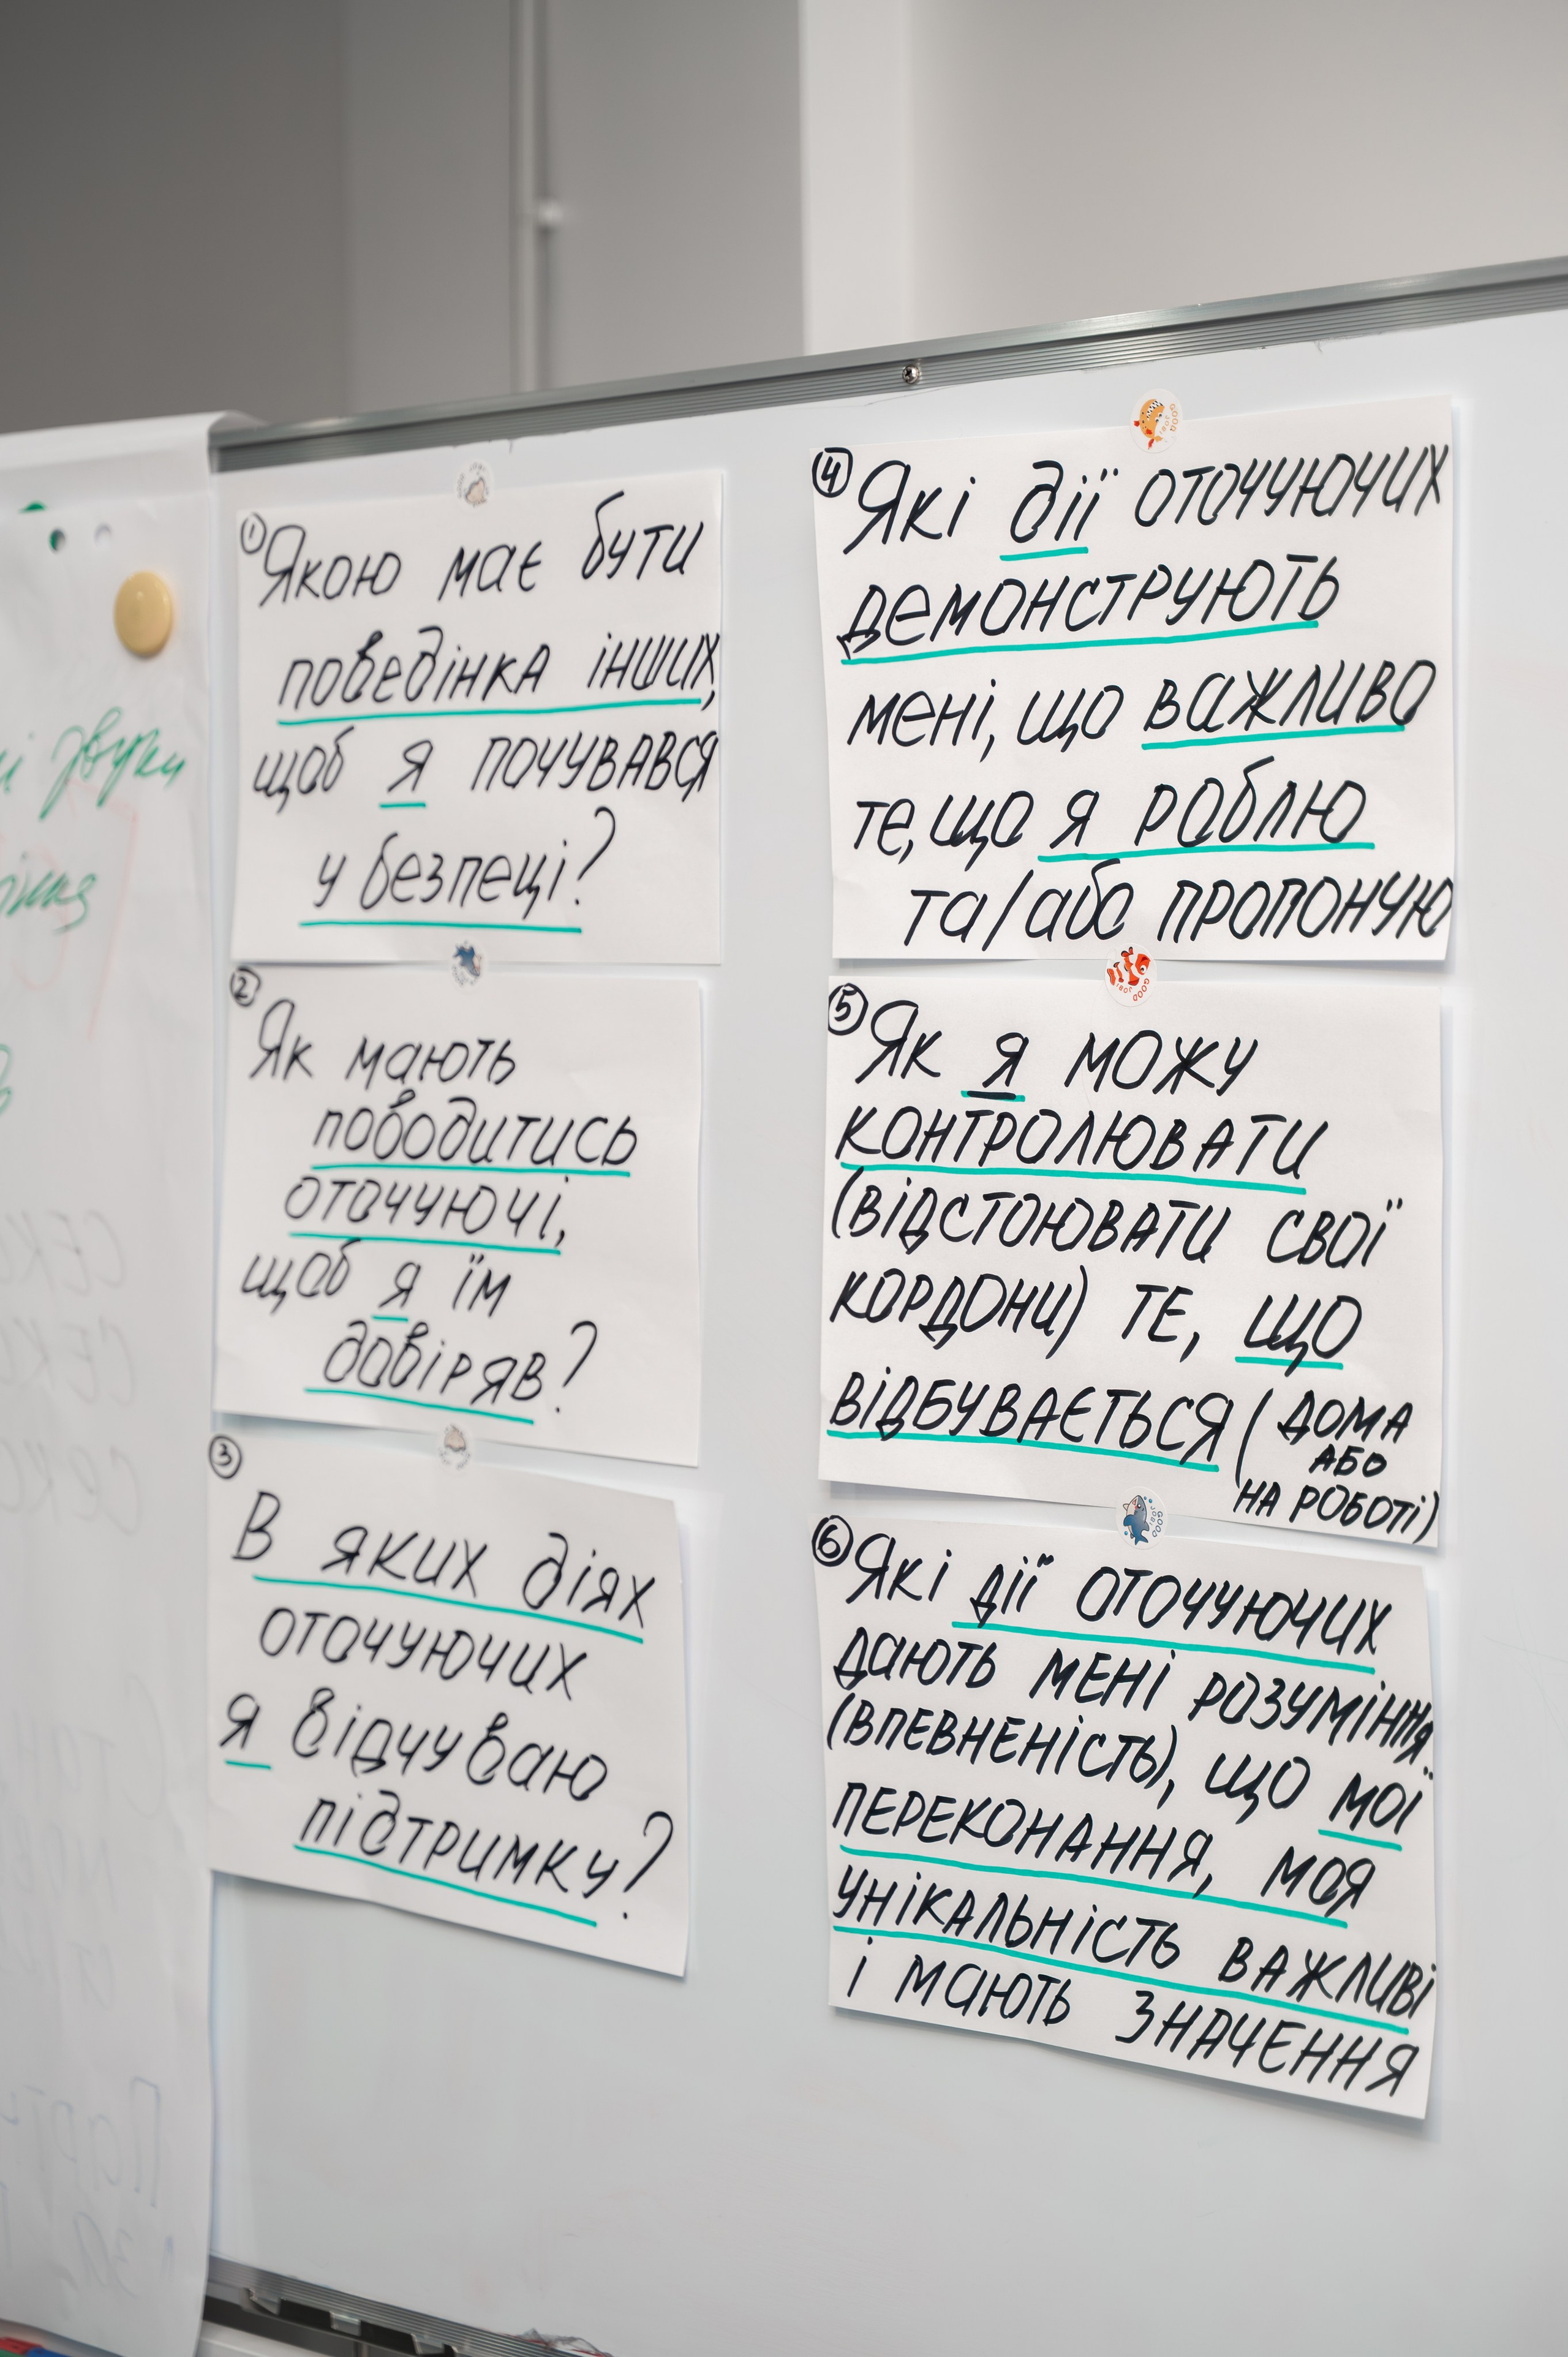 звуки
1
Якою має бути
поведінка інших,
щоб я почувався
у безпеці?
2
Як мають
поводитись
оточуючі,
щоб я їм
довіряв?
3
В яких діях
оточуючих
я відчуваю
підтримку?
4
Які дії оточуючих
демонструють
мені, що важливо
те, що я роблю
та/або пропоную
GOOD JOB!
5
Як я можу
контролювати
(відстоювати свої
кордони) те, що
відбувається (дома
або
на роботі)
GOOD JOB!
6
Які дії оточуючих
дають мені розуміння
(впевненість), що мої
переконання, моя
унікальність важливі
і мають значення
GOOD JOB!